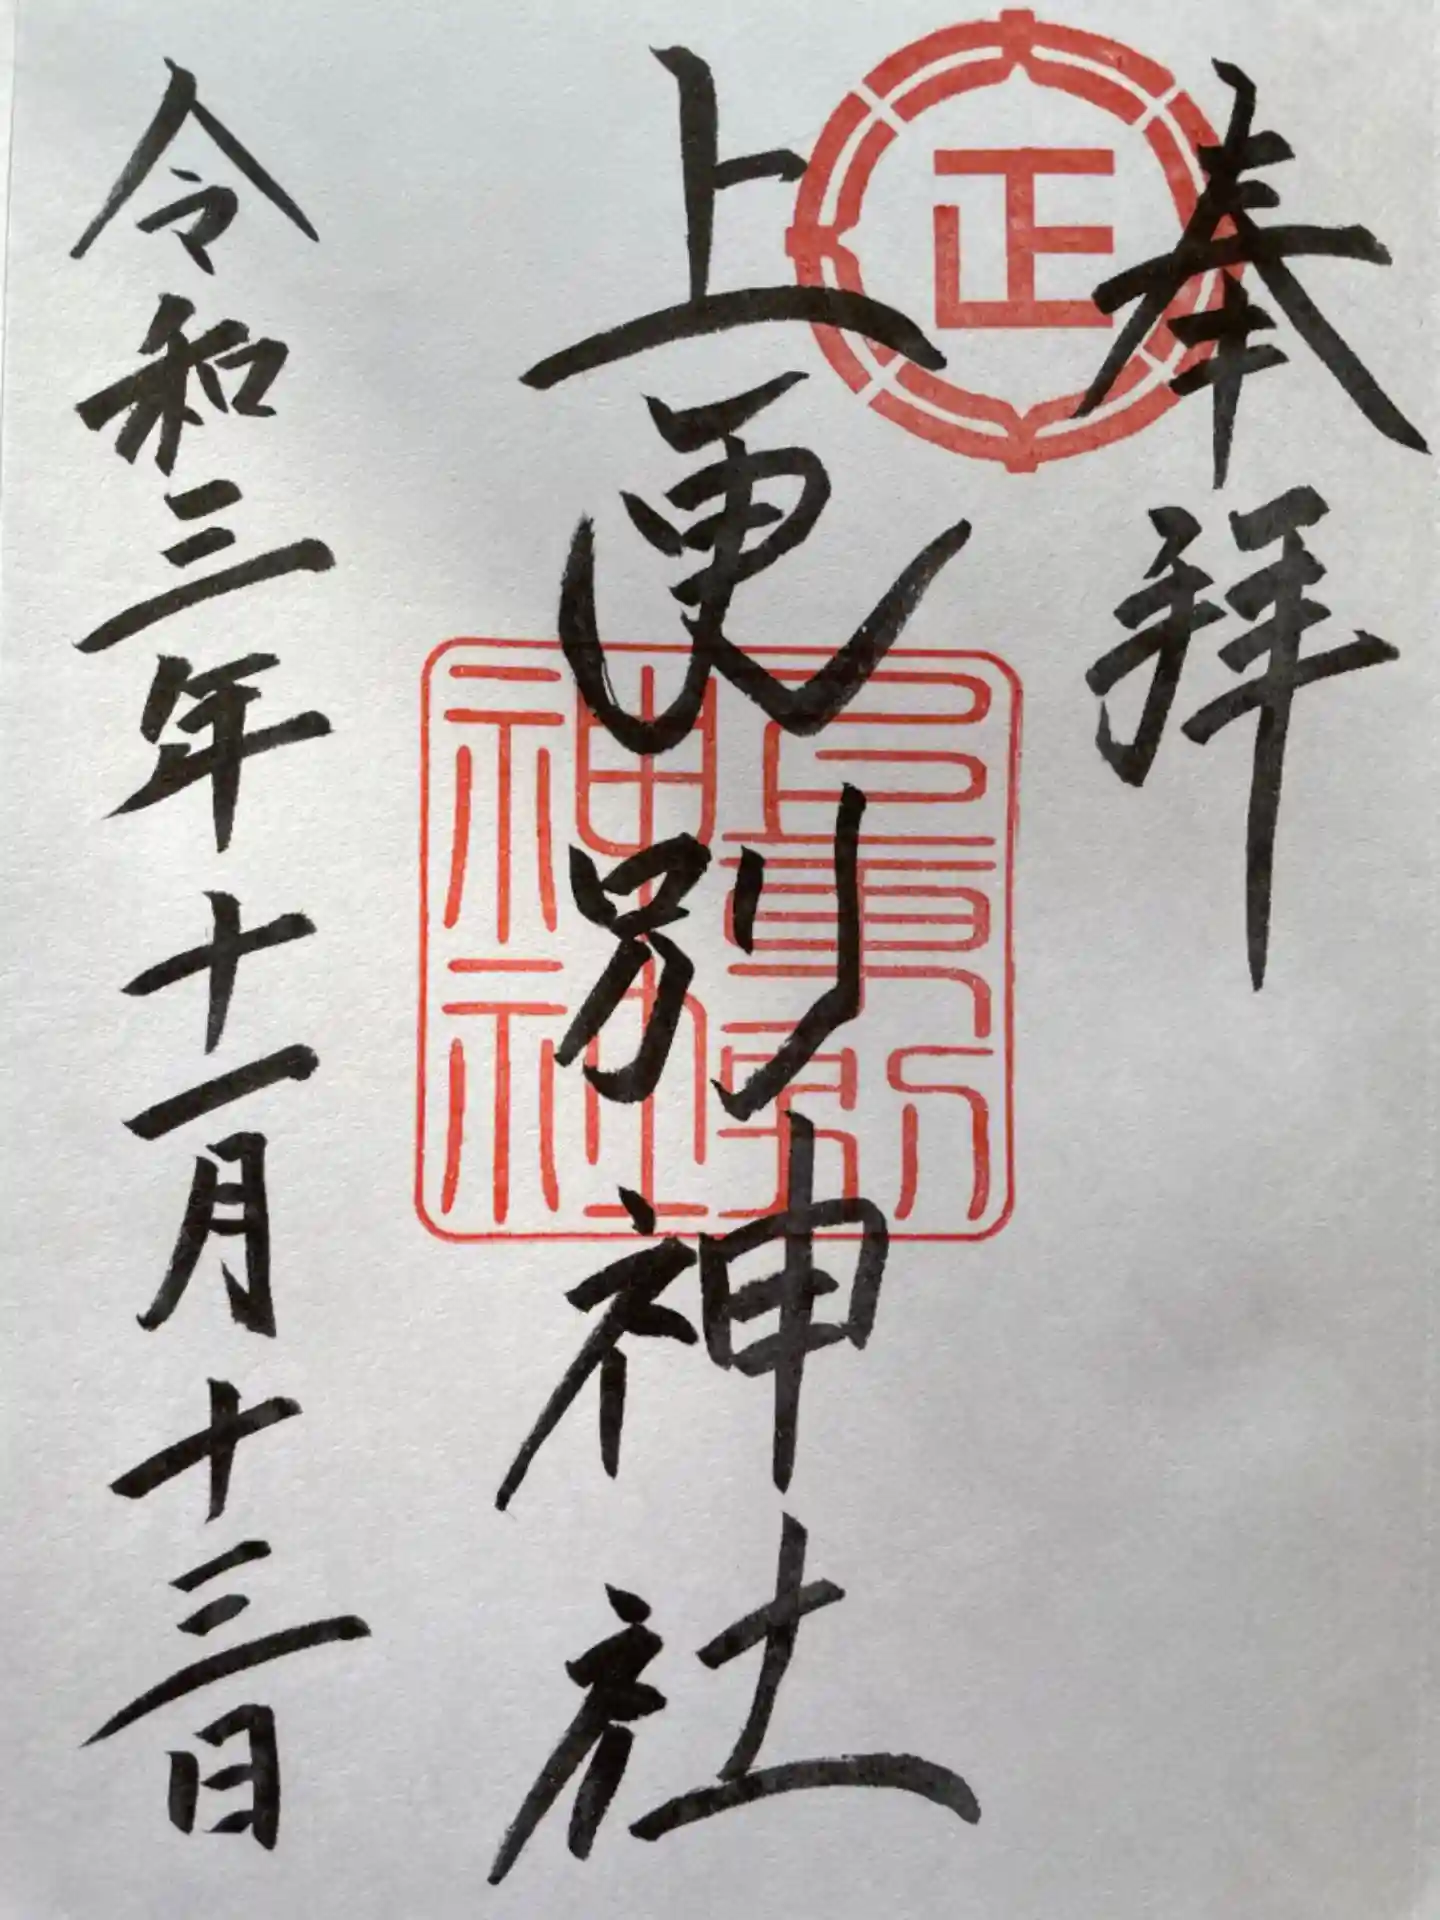 奉拝
正
上更別神社
更別神社
令和三年十一月十三日